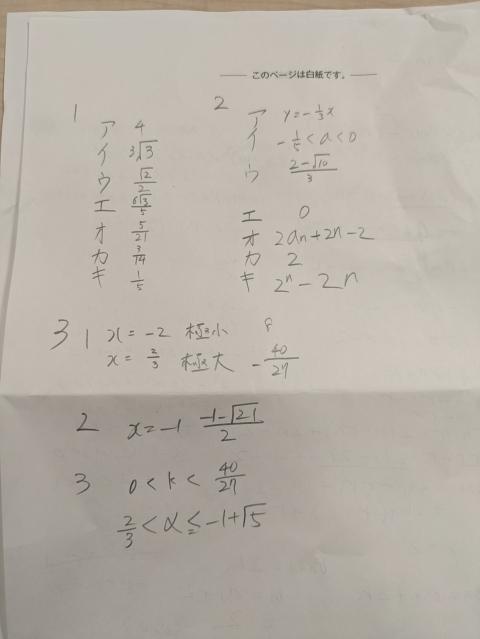 このページは白紙です。
1
ア 4
イ 3√3
ウ √2/2
エ 6√3/5
オ 5/21
カ 3/14
キ 1/5
2
ア y=-1/3x
イ -1/5<a<0
ウ 2-√10/3
エ 0
オ 2an+2n-2
カ 2
キ 2^n-2n
3 1 x=-2 極小 8
x=2/3 極大 -40/27
2 x=-1 -1-√21/2
3 0<k<40/27
2/3<α≦-1+√5